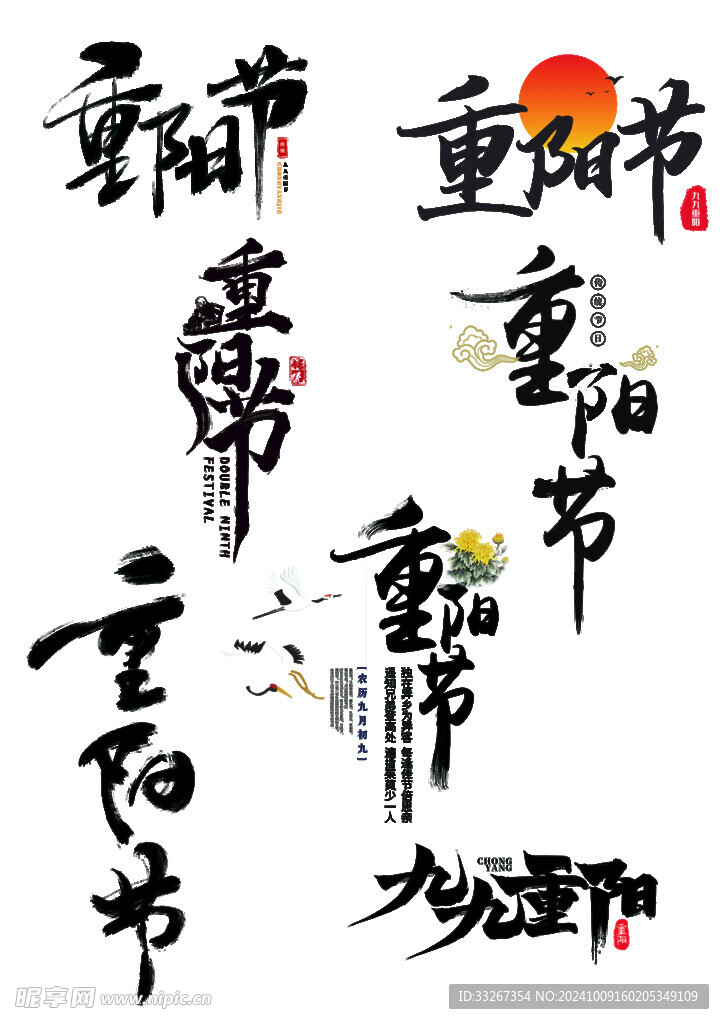 重阳节
CHONGYANGJIE
重阳节
九九重阳
重阳节
DOUBLE NINTH
FESTIVAL
重阳节
传统节日
重阳节
重阳节
【农历九月初九】
独在异乡为异客 每逢佳节倍思亲
遥知兄弟登高处 遍插茱萸少一人
九九重阳
CHONG
YANG
重阳
昵享网 www.nipic.cn
ID:33267354 NO:20241009160205349109